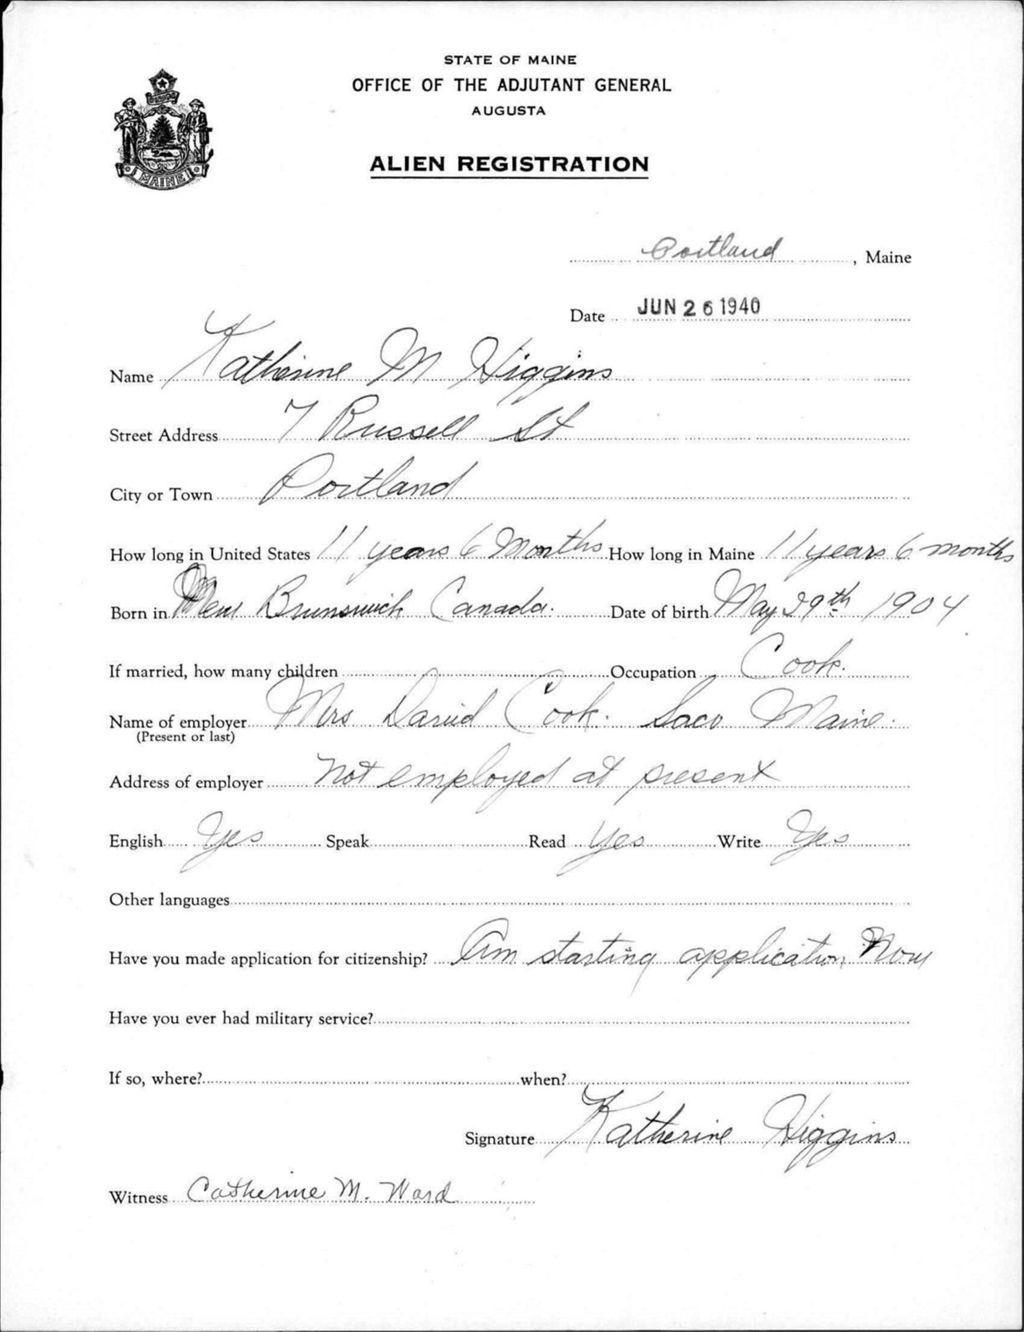 STATE OF MAINE
OFFICE OF THE ADJUTANT GENERAL
AUGUSTA
ALIEN REGISTRATION
MAINE
Portland, Maine
Date JUN 26 1940
Name Katherine M Higgins
Street Address 7 Russell St
City or Town Portland
How long in United States 11 years 6 Months How long in Maine 11 years 6 months
Born in New Brunswick Canada. Date of birth May 29th 1904
If married, how many children Occupation Cook.
Name of employer Mrs David Cook. Saco Maine.
(Present or last)
Address of employer Not employed at present
English Yes Speak Read Yes Write Yes
Other languages
Have you made application for citizenship? Am starting application Now
Have you ever had military service?
If so, where? when?
Signature Katherine Higgins
Witness Catherine M. Ward